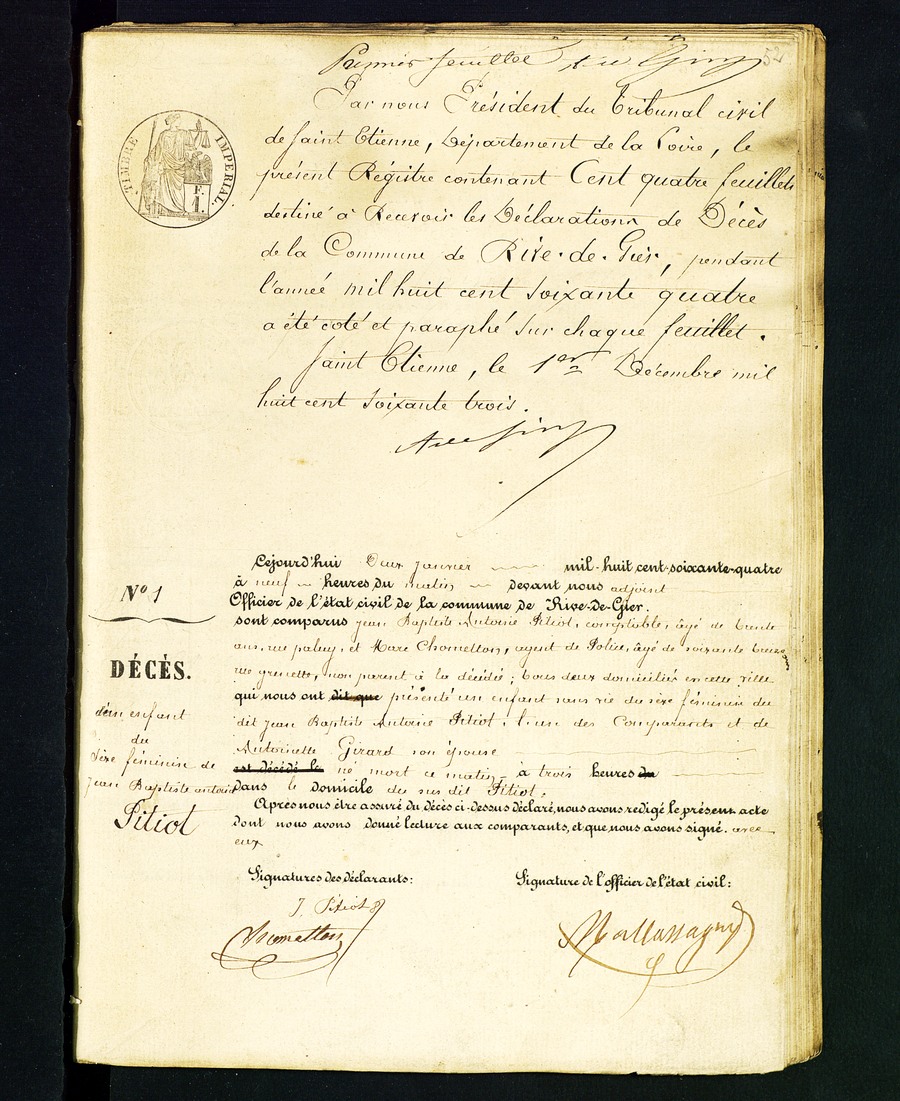 Premier feuillet
52
Par nous Président du Tribunal civil
de Saint Etienne, Département de la Loire, le
présent Régistre contenant Cent quatre feuillets
destiné à Recevoir les Déclarations de Décès
de la Commune de Rive-de-Gier, pendant
l'année mil huit cent soixante quatre
a été coté et paraphé sur chaque feuillet.
Saint Etienne, le 1er Décembre mil
huit cent soixante trois.
TIMBRE IMPERIAL.
F.
1.
Nº 1
DÉCÈS.
d'un enfant
du
sexe féminin de
Jean Baptiste Antoine
Pitiot
Cejourd'hui Deux Janvier mil-huit cent-soixante-quatre
à neuf heures du matin devant nous adjoint
Officier de l'état civil de la commune de Rive-De-Gier.
sont comparus Jean Baptiste Antoine Pitiot, comptable, âgé de trente
ans, rue paluy, et Marc Chometton, agent de Police, âgé de soixante treize
rue grenette, non parent à la décédée; tous deux domiciliés en cette ville
qui nous ont dit que présenté un enfant sans vie du sexe féminin du
dit Jean Baptiste Antoine Pitiot, l'un des Comparants et de
Antoinette Girard son épouse
est décédé le né mort ce matin à trois heures du
Dans le domicile du sus dit Pitiot.
Après nous être assuré du décès ci-dessus déclaré, nous avons redigé le présent acte
dont nous avons donné lecture aux comparants, et que nous avons signé. avec
eux
Signatures des déclarants:
Signature de l'officier de l'état civil:
J. Pitiot
Chometton